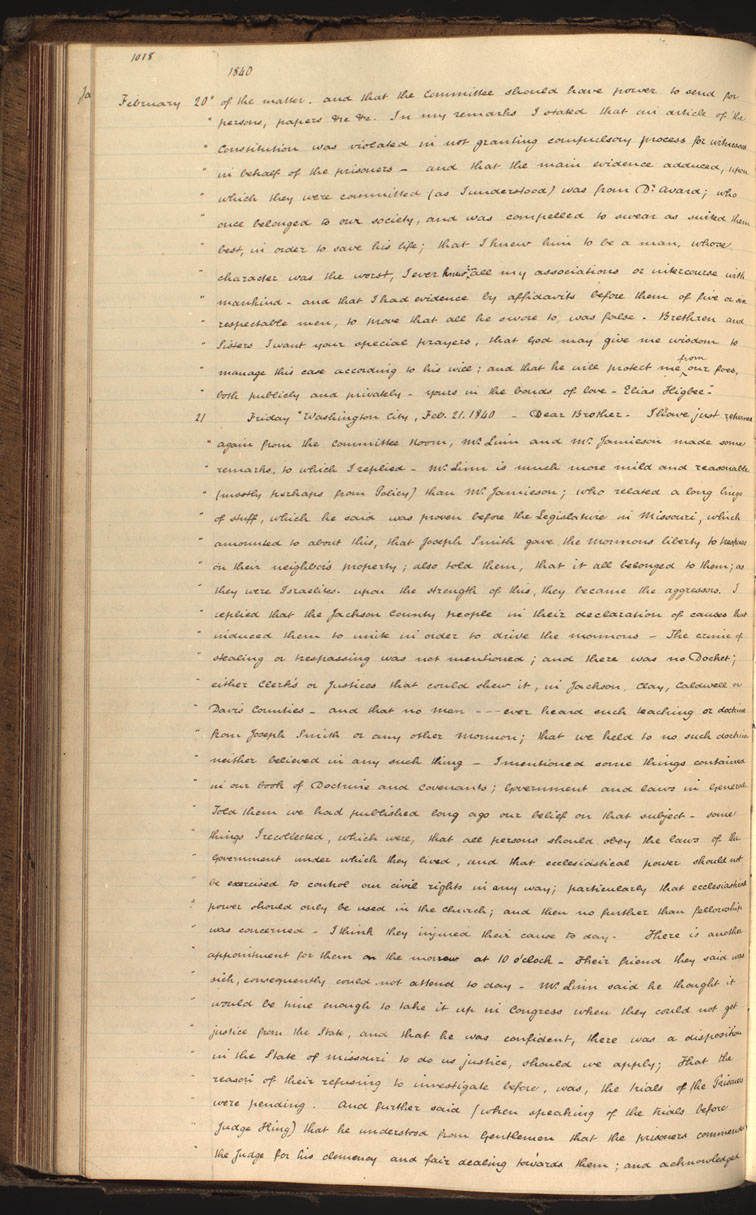 1018
1840
Ja
February 20 " of the matter. and that the Committee should have power to send for
" persons, papers &c &c. In my remarks I stated that an article of the
" Constitution was violated in not granting compulsory process for witnesses
" in behalf of the prisoners – and that the main evidence adduced, upon
" which they were committed (as I understood) was from Dr. Avard; who
" once belonged to our society, and was compelled to swear as suited them
" best, in order to save his life; that I knew him to be a man, whose
" character was the worst, I ever knew in all my associations or intercourse with
" mankind – and that I had evidence by affidavits before them of five or six
" respectable men, to prove that all he swore to, was false. Brethren and
" Sisters I want your special prayers, that God may give me wisdom to
" manage this case according to his will; and that he will protect me from our foes,
" both publicly and privately – yours in the bonds of love – Elias Higbee."
21 Friday "Washington City, Feb. 21. 1840 – Dear Brother – I have just returned
" again from the Committee Room, Mr. Linn and Mr. Jamieson made some
" remarks, to which I replied – Mr. Linn is much more mild and reasonable
" (mostly perhaps from Policy) than Mr. Jamieson; who related a long lingo
" of stuff, which he said was proven before the Legislature in Missouri, which
" amounted to about this, that Joseph Smith gave the Mormons liberty to trespass
" on their neighbor's property; also told them, that it all belonged to them; as
" they were Israelites. upon the strength of this, they became the aggressors. I
" replied that the Jackson County people in their declaration of causes that
" induced them to unite in order to drive the mormons – The crime of
" stealing or trespassing was not mentioned; and there was no Docket;
" either Clerk's or Justices that could shew it, in Jackson, Clay, Caldwell or
" Davis Counties – and that no man --- ever heard such teaching or doctrine
" from Joseph Smith or any other Mormon; that we held to no such doctrine
" neither believed in any such thing – I mentioned some things contained
" in our book of Doctrine and Covenants; Government and laws in general
" Told them we had published long ago our belief on that subject – some
" things I recollected, which were, that all persons should obey the laws of the
" Government under which they lived, and that ecclesiastical power should not
" be exercised to control our civil rights in any way; particularly that ecclesiastical
" power should only be used in the church; and then no further than fellowship
" was concerned – I think they injured their cause to day – There is another
" appointment for them on the morrow at 10 o'clock – Their friend they said was
" sick, consequently could not attend to day – Mr. Linn said he thought it
" would be time enough to take it up in Congress when they could not get
" justice from the State, and that he was confident, there was a disposition
" in the State of Missouri to do us justice, should we apply; That the
" reason of their refusing to investigate before, was, the trials of the Prisoners
" were pending. And further said (when speaking of the trials before
" Judge King) that he understood from Gentlemen that the prisoners commended
" the Judge for his clemency and fair dealing towards them; and acknowledged